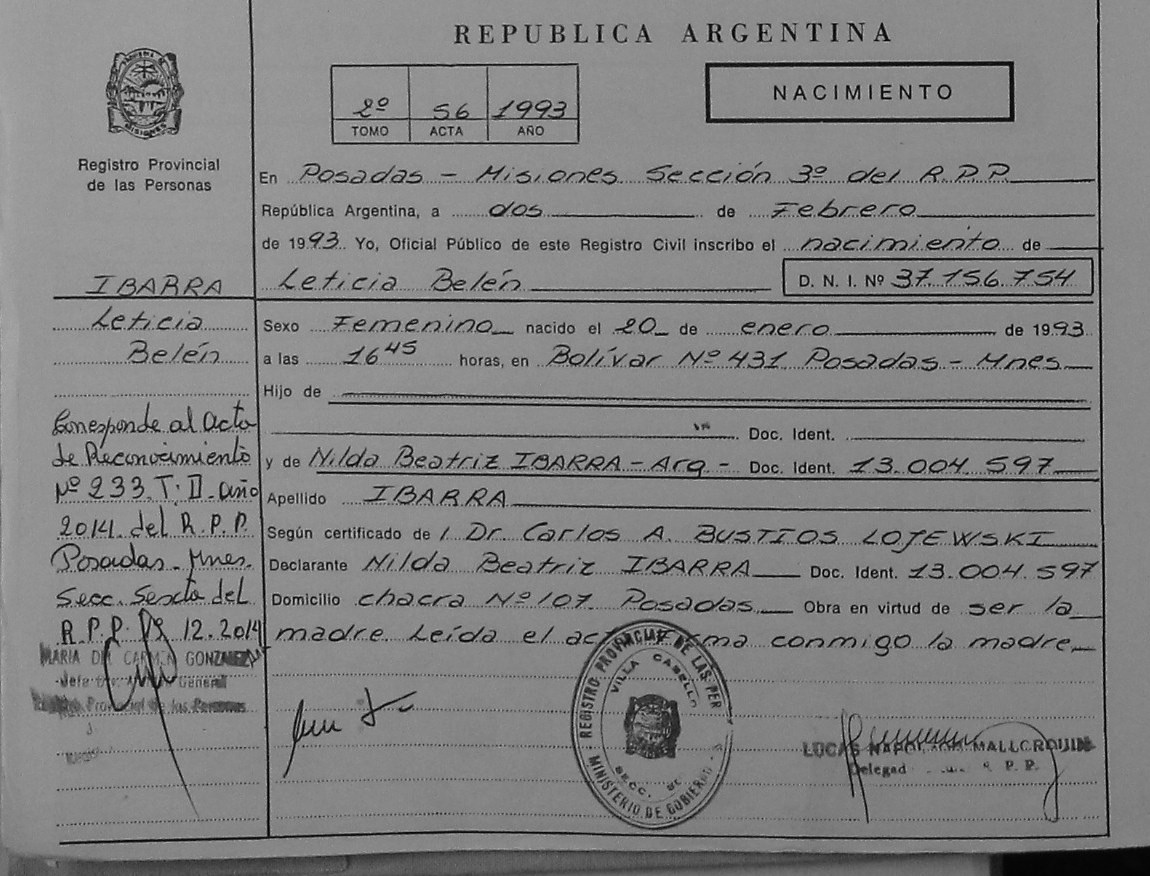 REPUBLICA ARGENTINA
NACIMIENTO
2º 56 1993
TOMO ACTA AÑO
Registro Provincial
de las Personas
En Posadas - Misiones Sección 3º del R.P.P.
República Argentina, a dos de Febrero
de 1993. Yo, Oficial Público de este Registro Civil inscribo el nacimiento de
Leticia Belén D. N. I. Nº 37.156.754
Sexo Femenino nacido el 20 de enero de 1993
a las 16 45 horas, en Bolívar Nº 431 Posadas - Mnes
Hijo de
Doc. Ident.
y de Nilda Beatriz IBARRA - Arg - Doc. Ident. 13.004.597
Apellido IBARRA
Según certificado de l Dr. Carlos A. BUSTIOS LOJEWSKI
Declarante Nilda Beatriz IBARRA Doc. Ident. 13.004.597
Domicilio chacra Nº 107. Posadas Obra en virtud de ser la
madre. Leída el firma conmigo la madre
IBARRA
Leticia
Belén
Corresponde al Acta
de Reconocimiento
Nº 233. T. II. año
2014. del R.P.P.
Posadas. Mnes.
Secc. Sexta del
R.P.P. 12.2014
MARIA DEL CARMEN GONZALEZ
General
Provincial de las Personas
REGISTRO PROVINCIAL DE LAS PER
VILLA CABELLO
SECC.
MINISTERIO DE GOBIERNO
LUCAS MALLORQUIN
Delegad P. P.